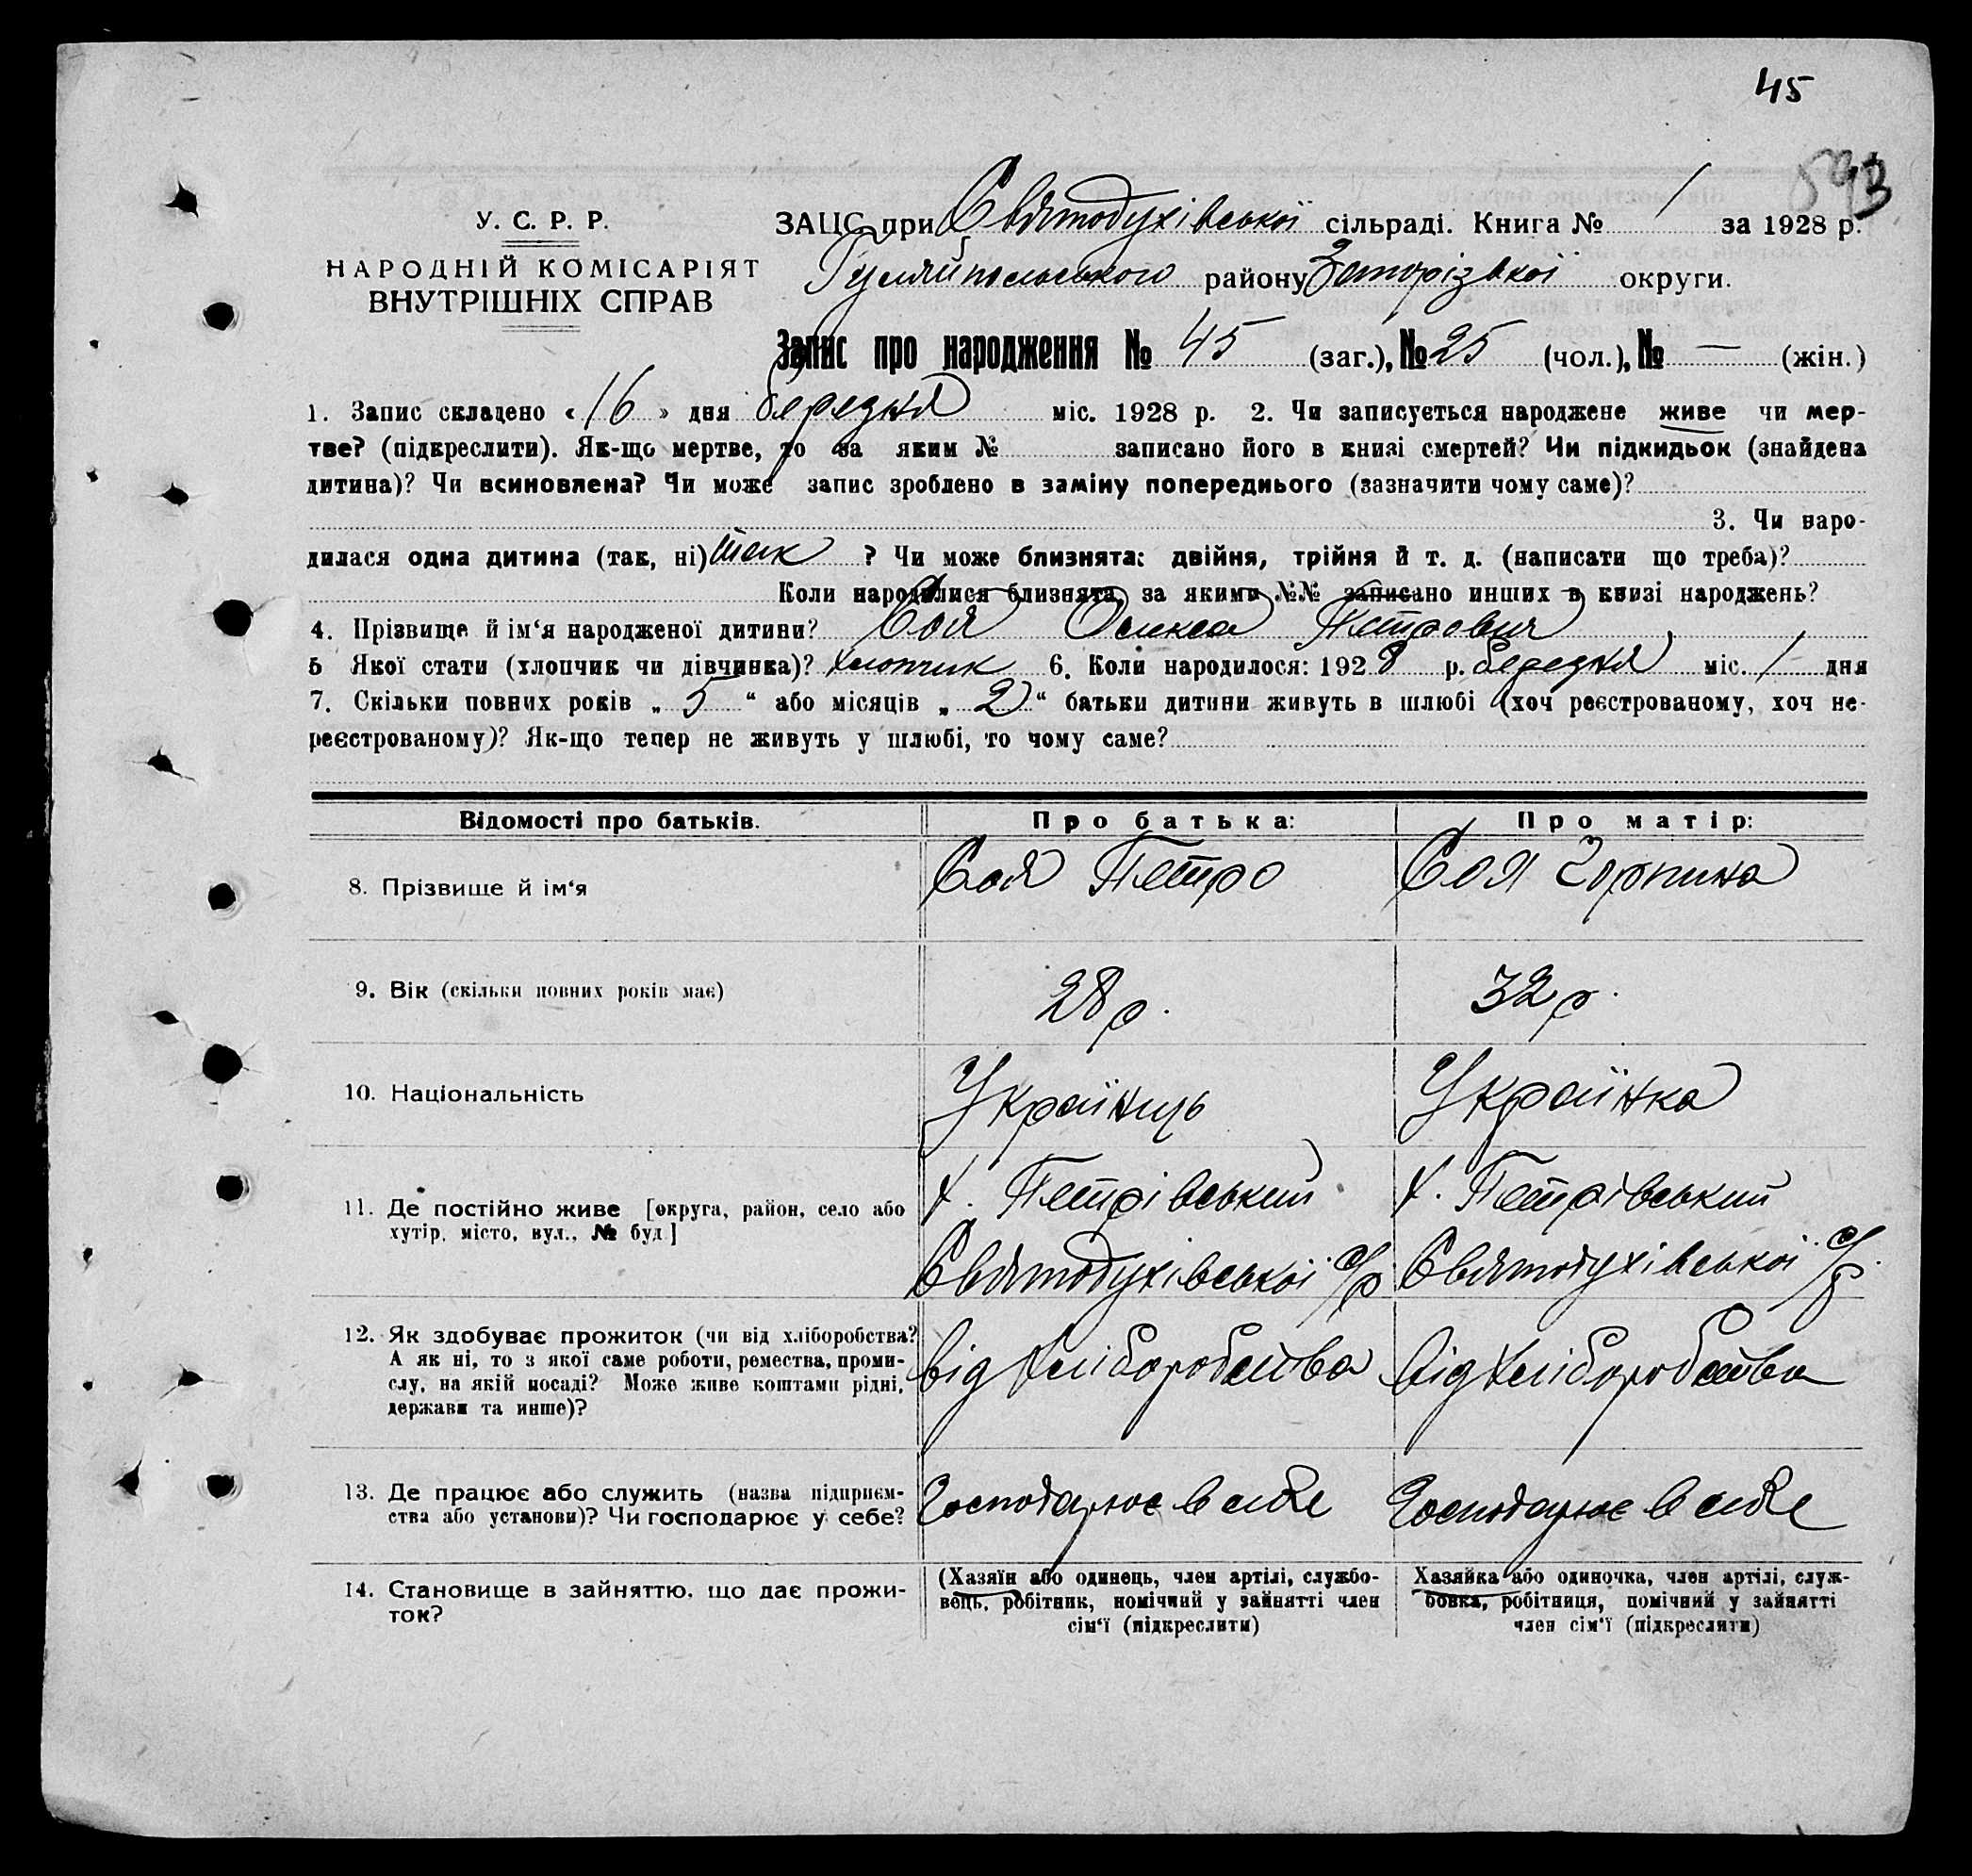 45
593
У. С. Р. Р.
НАРОДНІЙ КОМІСАРІЯТ
ВНУТРІШНІХ СПРАВ
ЗАЦС при Святодухівської сільраді. Книга № 1 за 1928 р.
Гуляйпольського району Запорізької округи.
Запис про народження № 45 (заг.), № 25 (чол.), № — (жін.)
1. Запис складено « 16 » дня березня міс. 1928 р. 2. Чи записується народжене живе чи мер-
тве? (підкреслити). Як-що мертве, то за яким № записано його в книзі смертей? Чи підкидьок (знайдена
дитина)? Чи всиновлена? Чи може запис зроблено в заміну попереднього (зазначити чому саме)?
3. Чи наро-
дилася одна дитина (так, ні) так ? Чи може близнята: двійня, трійня й т. д. (написати що треба)?
Коли народилися близнята, за якими №№ записано инших в книзі народжень?
4. Прізвище й ім‘я народженої дитини? Соя Олекса Петрович
5 Якої стати (хлопчик чи дівчинка)? хлопчик 6. Коли народилося: 1928 р. березня міс. 1 дня
7. Скільки повних років „ 5 “ або місяців „ 2 “ батьки дитини живуть в шлюбі (хоч реєстрованому, хоч не-
реєстрованому)? Як-що тепер не живуть у шлюбі, то чому саме?
Відомості про батьків. Про батька: Про матір:
8. Прізвище й ім‘я Соя Петро Соя Горпина
9. Вік (скільки повних років має) 28 р. 32 р.
10. Національність Українць Українка
11. Де постійно живе [округа, район, село або х. Петрівський х. Петрівський
хутір, місто, вул., № буд.] Святодухівської с/р Святодухівської с/р.
12. Як здобуває прожиток (чи від хліборобства?
А як ні, то з якої саме роботи, ремества, проми- від хліборобства від хліборобства
слу, на якій посаді? Може живе коштами рідні,
держави та инше)?
13. Де працює або служить (назва підприєм- Господарює в себе Господарює в себе
ства або установи)? Чи господарює у себе?
14. Становище в зайняттю, що дає прожи- (Хазяїн або одинець, член артілі, службо- Хазяйка або одиночка, член артілі, служ-
ток? вець, робітник, помічний у зайнятті член бовка, робітниця, помічний у зайнятті
сім‘ї (підкреслити) член сім‘ї (підкреслити)